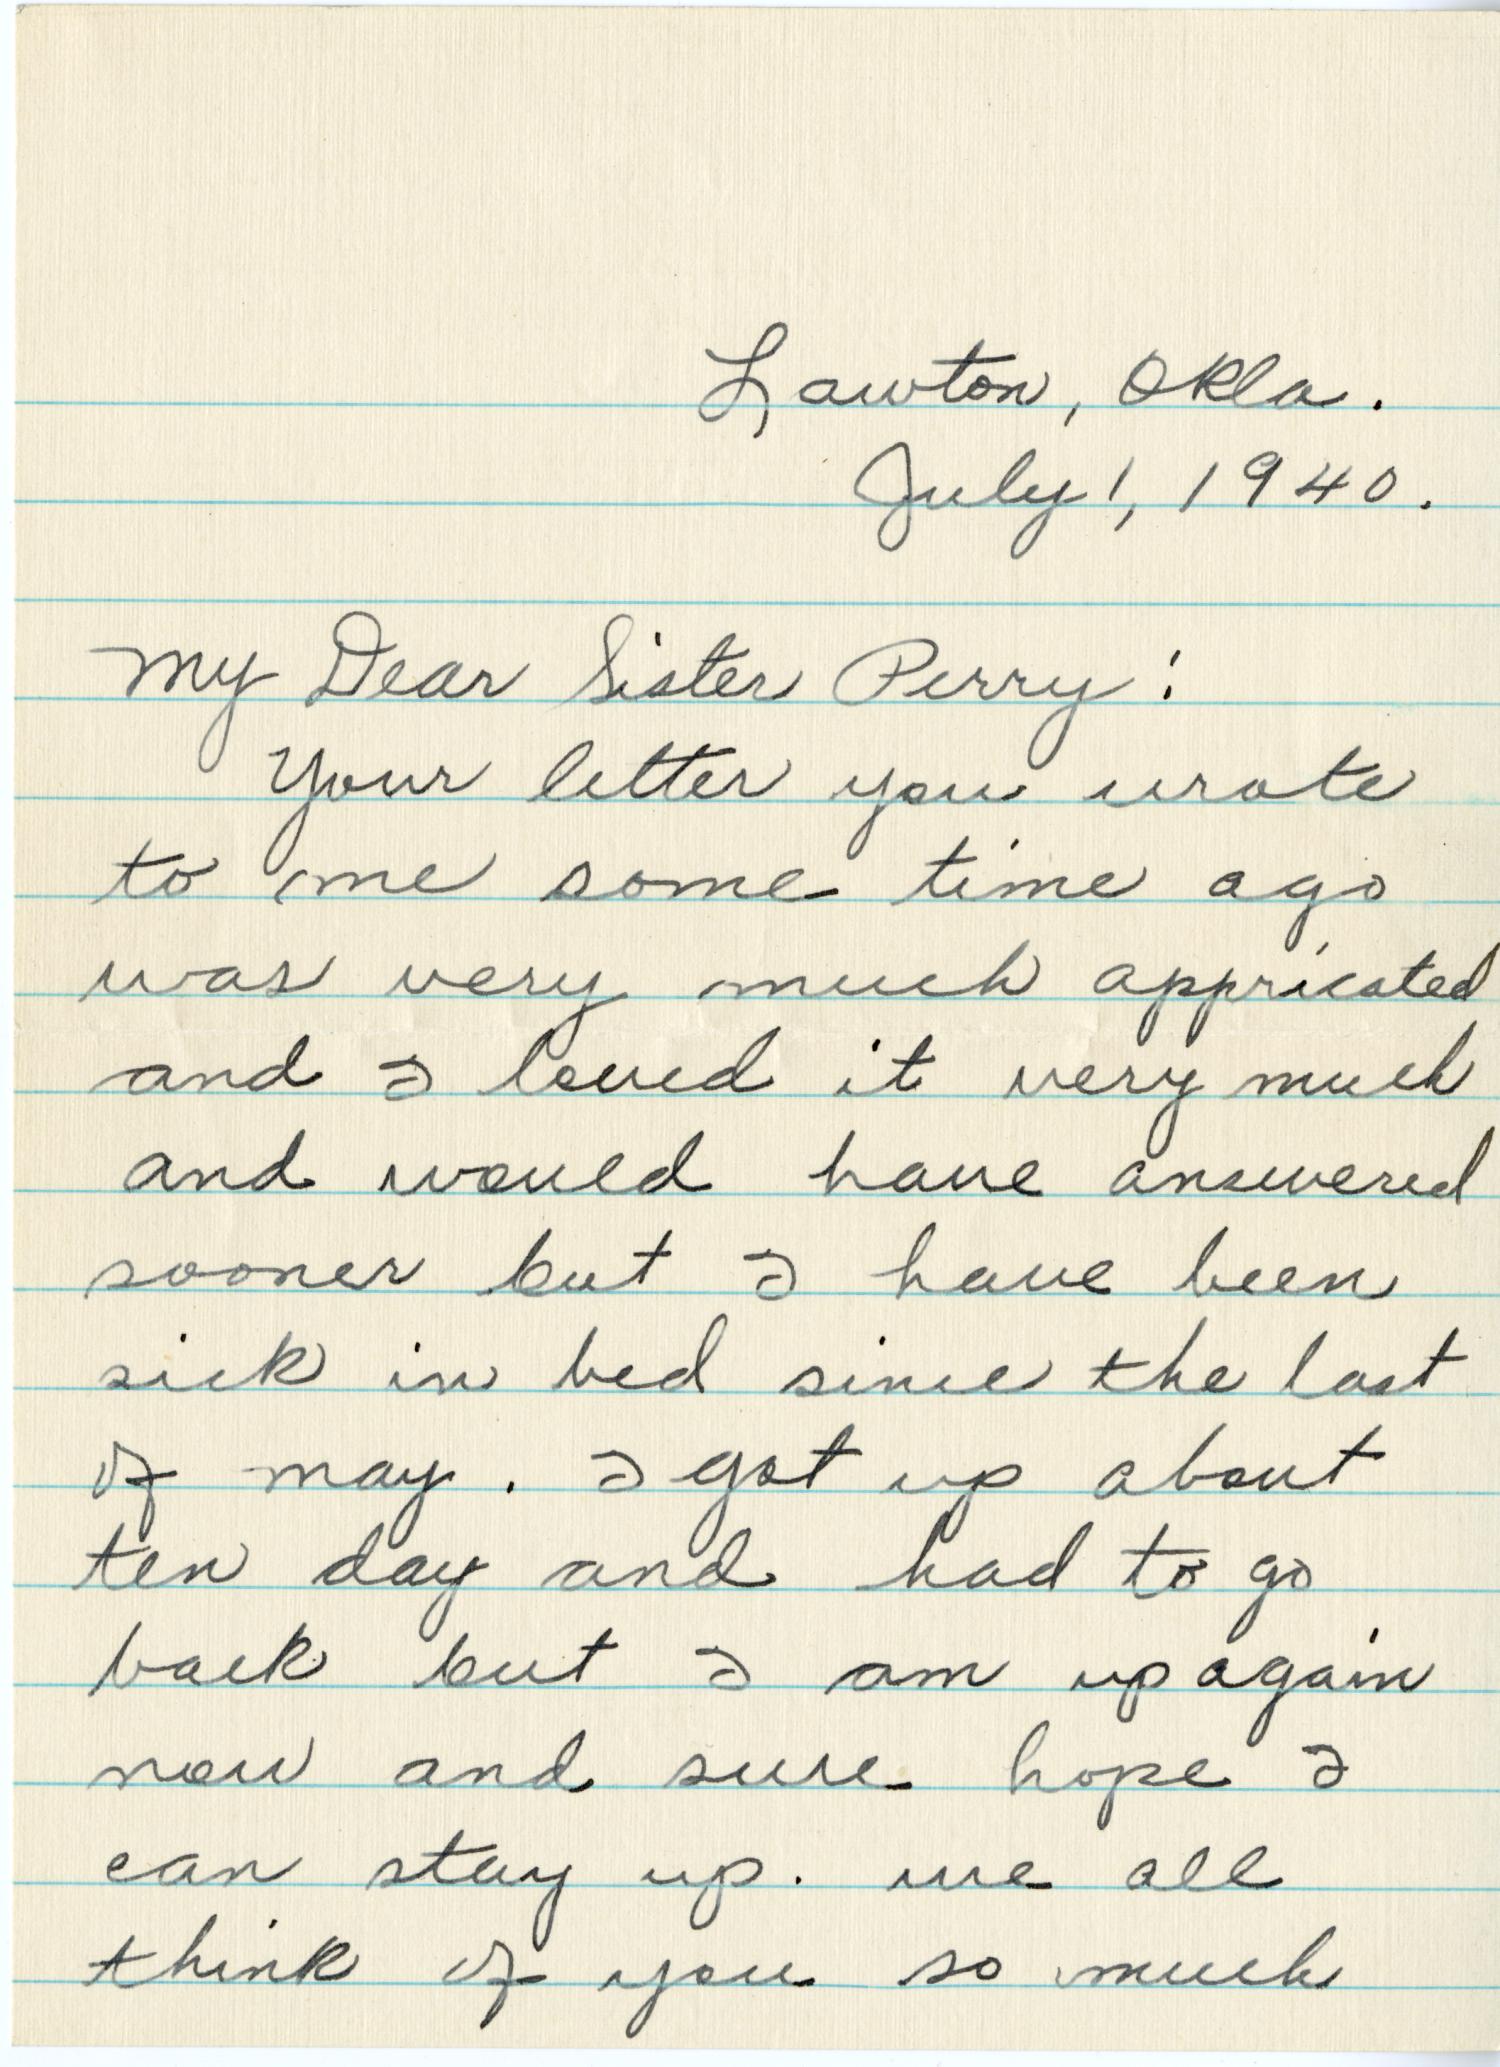 Lawton, Okla.
July 1, 1940.
My Dear Sister Perry:
Your letter you wrote
to me some time ago
was very much appricated
and I loved it very much
and would have answered
sooner but I have been
sick in bed since the last
of may. I got up about
ten day and had to go
back but I am up again
now and sure hope I
can stay up. we all
think of you so much